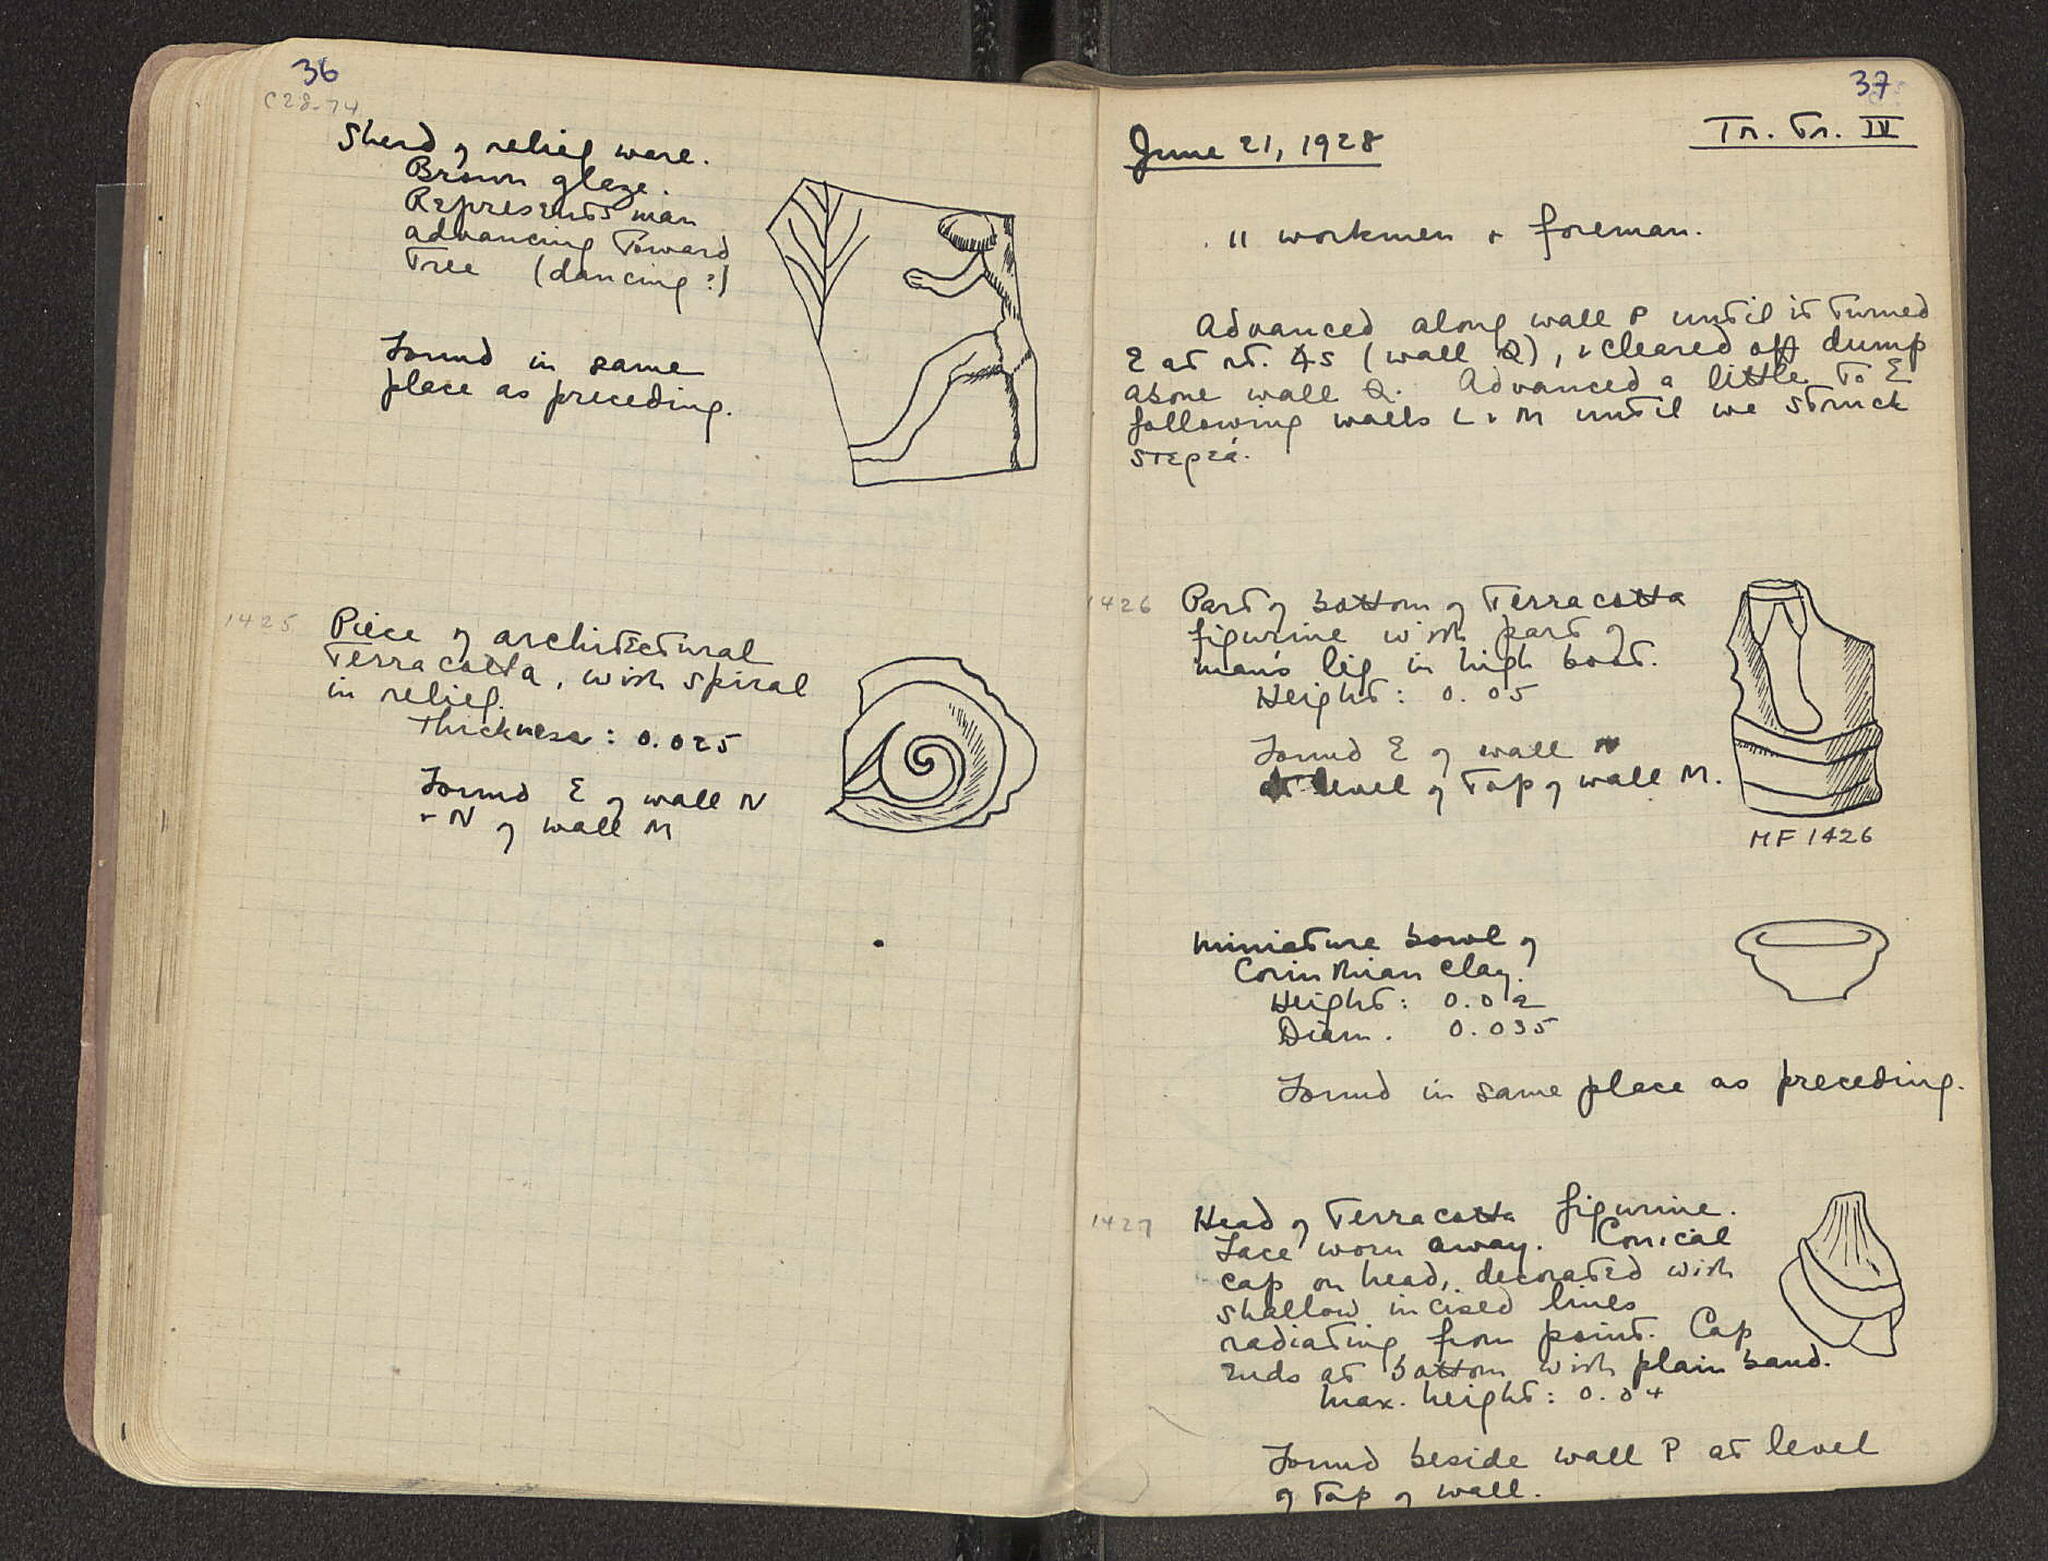 36
C28-74
Sherd of relief ware.
Brown glaze.
Represents man
advancing toward
tree (dancing?)
Found in same
place as preceding.
1425
Piece of architectural
terracotta, with spiral
in relief.
Thickness: 0.025
Found E of wall N
+ N of wall M
37
Tr. Tr. IV
June 21, 1928
11 workmen + foreman.
Advanced along wall P until it turned
E at rt. ∡s (wall Q), + cleared off dump
above wall Q. Advanced a little to E
following walls L + M until we struck
στερεά.
1426
Part of bottom of terracotta
figurine with part of
man's leg in high boot.
Height: 0.05
Found E of wall N
at level of top of wall M.
MF 1426
Miniature bowl of
Corinthian clay.
Height: 0.02
Diam. 0.035
Found in same place as preceding.
1427
Head of terracotta figurine.
Face worn away. Conical
cap on head, decorated with
shallow incised lines
radiating from point. Cap
ends at bottom with plain band.
Max. height: 0.04
Found beside wall P at level
of top of wall.